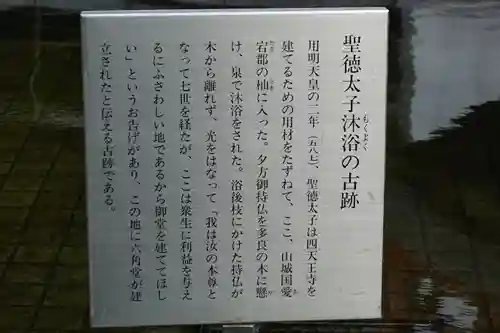 聖徳太子沐浴の古跡
もくよく
用明天皇の二年（五八七）、聖徳太子は四天王寺を
建てるための用材をたずねて、ここ、山城国愛
お
宕郡の杣に入った。夕方御持仏を多良の木に懸
たぎ
そま
か
け、泉で沐浴をされた。浴後枝にかけた持仏が
木から離れず、光をはなって「我は汝の本尊と
なって七世を経たが、ここは衆生に利益を与え
るにふさわしい地であるから御堂を建ててほし
い」というお告げがあり、この地に六角堂が建
立されたと伝える古跡である。